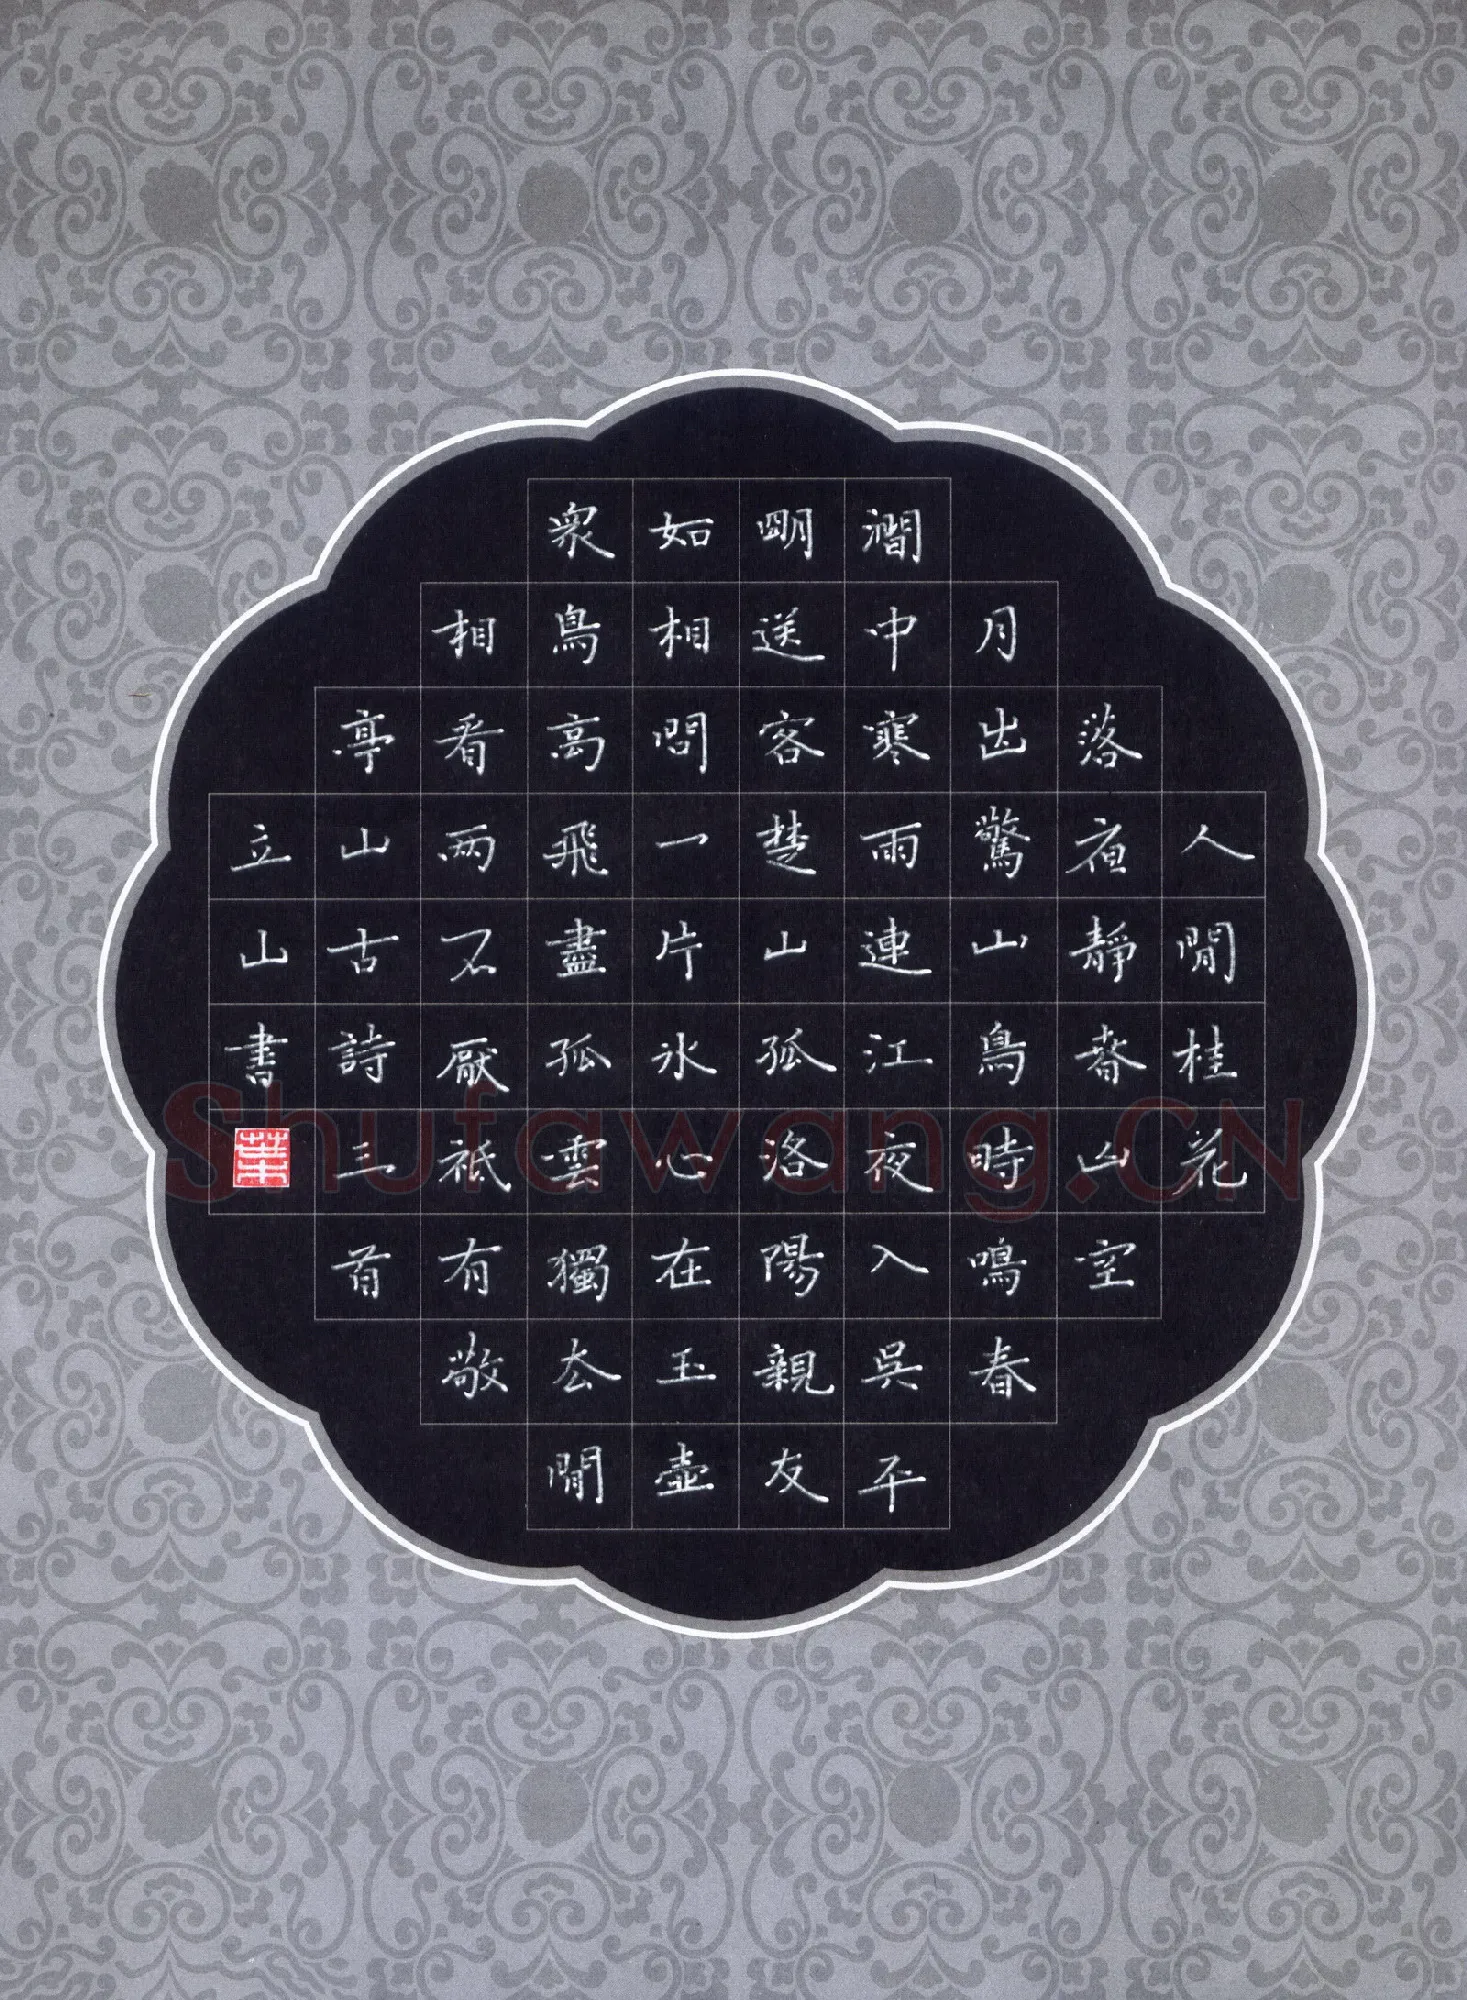 人閒桂花
落夜靜春山空
月出驚山鳥時鳴春
澗中寒雨連江夜入吳平
明送客楚山孤洛陽親友
如相問一片氷心在玉壺
衆鳥高飛盡孤雲獨去閒
相看兩不厭祗有敬
亭山古詩三首
立山書
葉
Shufawang.CN